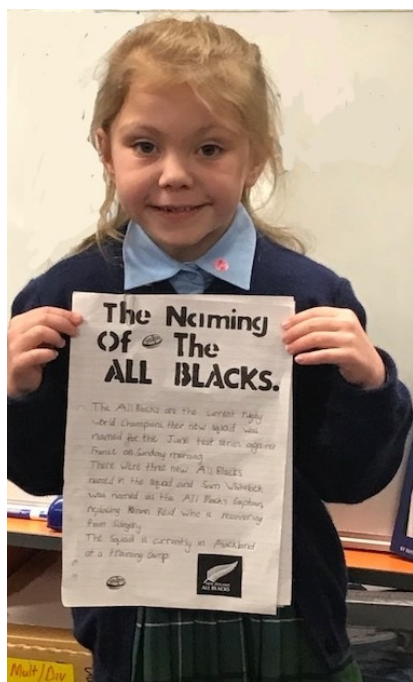 The Naming
Of The
ALL BLACKS.
The All Blacks are the current rugby
world champions. Ther new squad was
named for the June test series against
France on Sunday morning.
There were three new All Blacks
named in the squad and Sam Whitelock
was named as the All Blacks Captain,
replacing Kieran Reid who is recovering
from surgery.
The Squad is currently in Auckland
at a training camp.
NEW ZEALAND
ALL BLACKS
Mult/Div